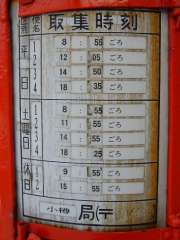 取集時刻
平日
1 8:55ごろ
2 12:05ごろ
3 14:50ごろ
4 18:35ごろ
土曜日
1 8:55ごろ
2 11:55ごろ
3 14:55ごろ
4 18:25ごろ
休日
1 9:55ごろ
2 15:55ごろ
小樽 局(〒